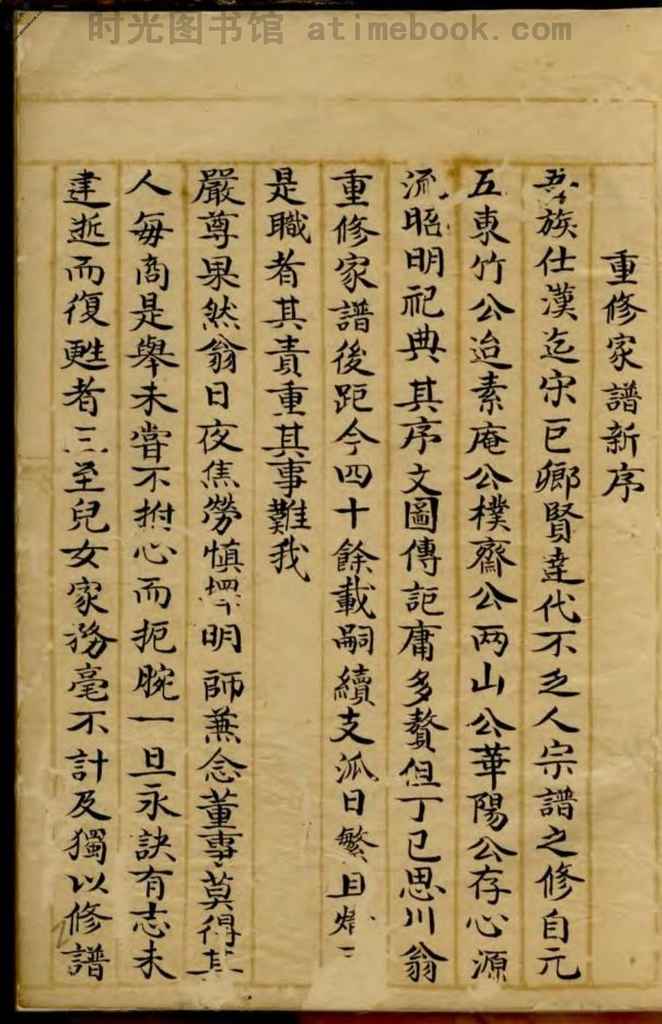 时光图书馆 atimebook.com
重修家譜新序
吾族仕漢迄宋巨鄉賢達代不乏人宗譜之修自元
五東竹公迨素庵公樸齋公两山公華陽公存心源
流昭明祀典其序文圖傳記庸多贅但丁巳思川翁
重修家譜後距今四十餘載嗣續支派日繁且
是職者其責重其事難我
嚴尊果然翁日夜焦勞慎擇明師兼念董事莫得其
人每商是舉未嘗不拊心而扼腕一旦永訣有志未
逮逝而復甦者三至兒女家務毫不計及獨以修譜